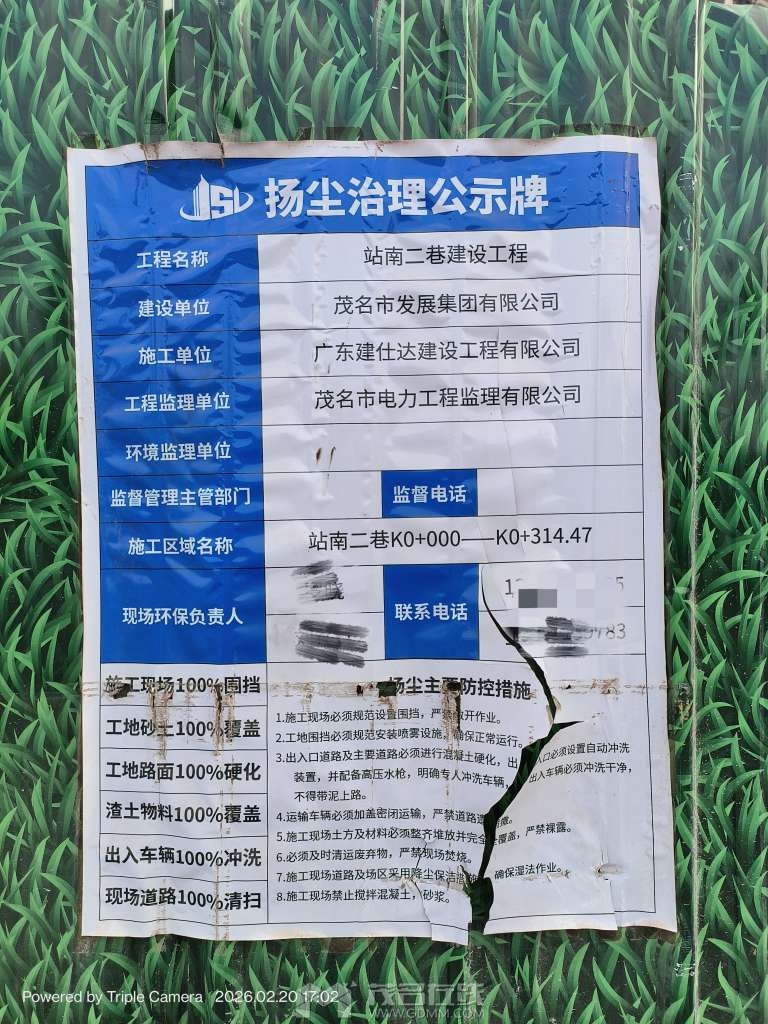 扬尘治理公示牌
工程名称 站南二巷建设工程
建设单位 茂名市发展集团有限公司
施工单位 广东建仕达建设工程有限公司
工程监理单位 茂名市电力工程监理有限公司
环境监理单位
监督管理主管部门 监督电话
施工区域名称 站南二巷K0+000——K0+314.47
现场环保负责人 联系电话
施工现场100%围挡
工地砂土100%覆盖
工地路面100%硬化
渣土物料100%覆盖
出入车辆100%冲洗
现场道路100%清扫
扬尘主要防控措施
1.施工现场必须规范设置围挡，严禁敞开作业。
2.工地围挡必须规范安装喷雾设施，确保正常运行。
3.出入口道路及主要道路必须进行混凝土硬化，出入口必须设置自动冲洗
装置，并配备高压水枪，明确专人冲洗车辆，出入车辆必须冲洗干净，
不得带泥上路。
4.运输车辆必须加盖密闭运输，严禁道路遗撒。
5.施工现场土方及材料必须整齐堆放并完全覆盖，严禁裸露。
6.必须及时清运废弃物，严禁现场焚烧。
7.施工现场道路及场区采用降尘保洁 确保湿法作业。
8.施工现场禁止搅拌混凝土，砂浆。
Powered by Triple Camera 2026.02.20 17:02
茂名在线
WWW.GDMM.COM